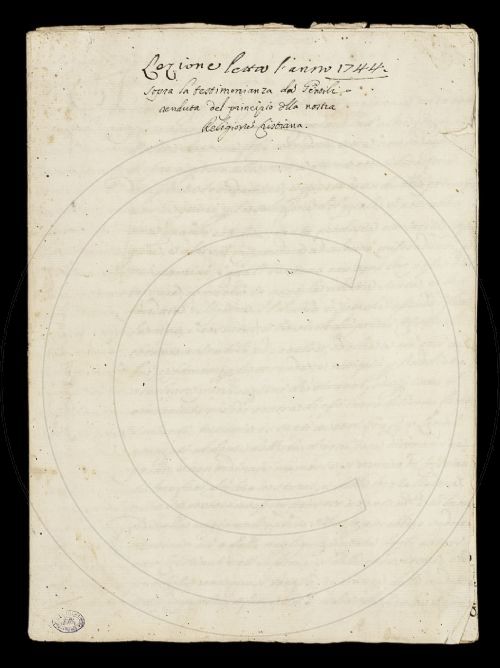 Lezione letta l'anno 1744.
Sopra la testimonianza da Gentili
renduta del principio della nostra
Religione Cristiana.